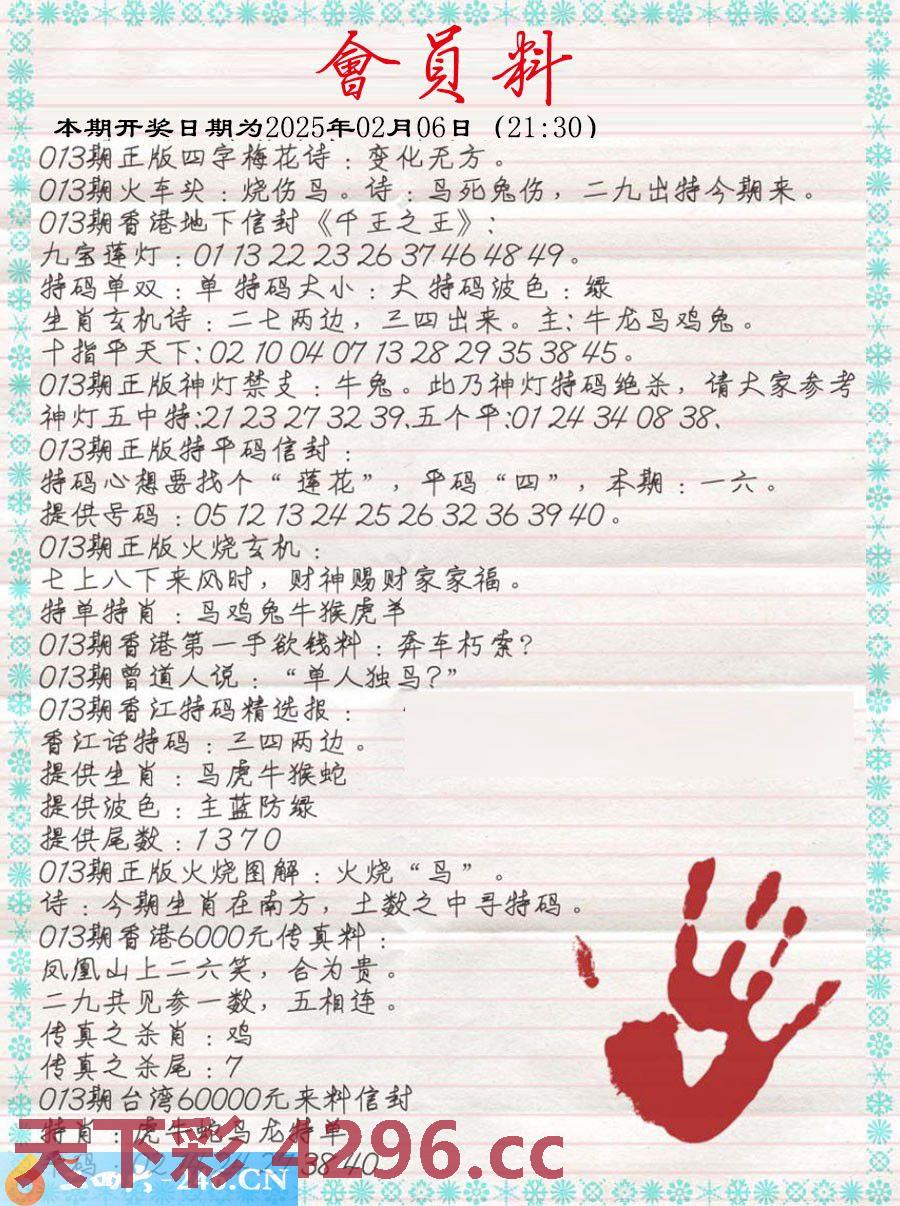 會員料
本期开奖日期为2025年02月06日（21:30）
013期正版四字梅花诗：变化无方。
013期火车头：烧伤鸟。诗：鸟死兔伤，二九出特今期来。
013期香港地下信封《千王之王》：
九宝莲灯：01 13 22 23 26 37 46 48 49。
特码单双：单 特码大小：大 特码波色：绿
生肖玄机诗：二七两边，三四出来。主：牛龙鸟鸡兔。
十指平天下：02 10 04 07 13 28 29 35 38 45。
013期正版神灯禁支：牛兔。此乃神灯特码绝杀，请大家参考
神灯五中特:21 23 27 32 39.五个平:01 24 34 08 38.
013期正版特平码信封：
特码心想要找个“莲花”，平码“四”，本期：一六。
提供号码：05 12 13 24 25 26 32 36 39 40。
013期正版火烧玄机：
七上八下来风时，财神赐财家家福。
特单特肖：鸟鸡兔牛猴虎羊
013期香港第一手欲钱料：奔车朽索？
013期曾道人说：“单人独鸟？”
013期香江特码精选报：
香江话特码：三四两边。
提供生肖：鸟虎牛猴蛇
提供波色：主蓝防绿
提供尾数：1 3 7 0
013期正版火烧图解：火烧“鸟”。
诗：今期生肖在南方，土数之中寻特码。
013期香港6000元传真料：
凤凰山上二六笑，合为贵。
二九共见参一数，五相连。
传真之杀肖：鸡
传真之杀尾：7
013期台湾60000元来料信封
特肖：虎牛蛇鸟龙特单
天下彩 4296.cc
38 40
246.CN